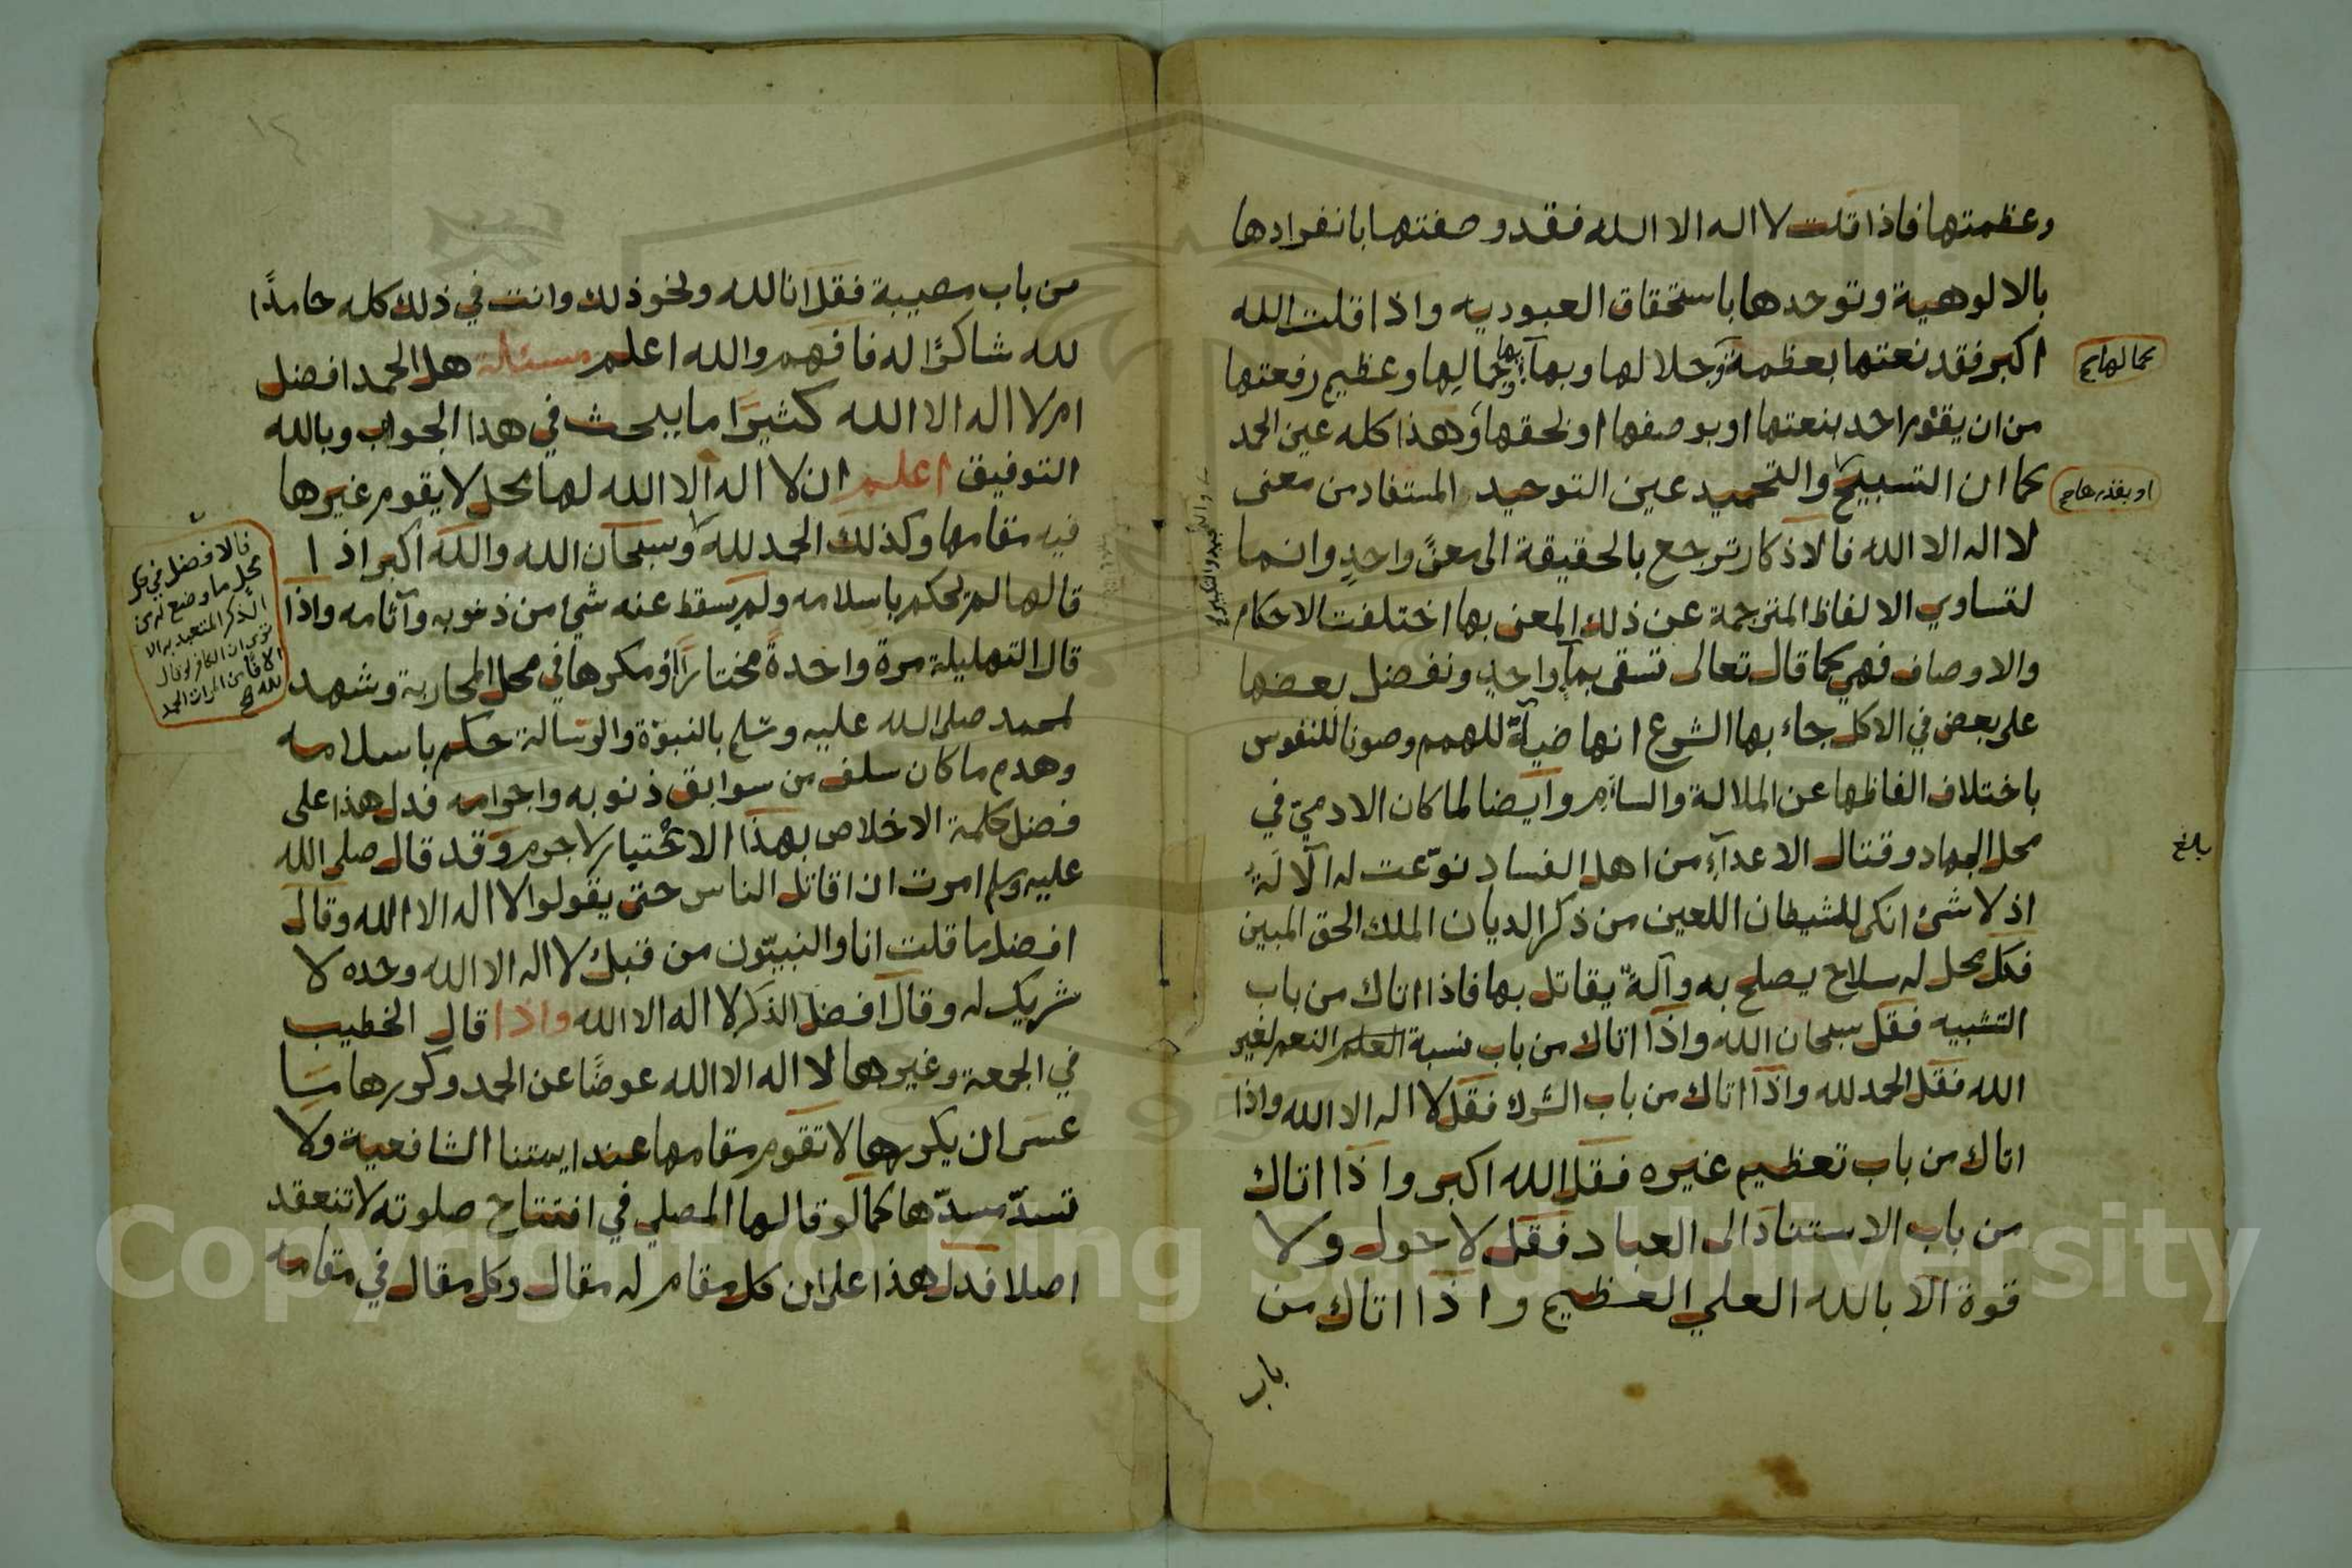 وعظمتها فاذا قلت لا اله الا الله فقد وصفتها بانفرادها
بالالوهية وتوحدها باستحقاق العبوديه واذا قلت الله
اكبر فقد نعتها بعظمة وجلالها وبهآئها وكمالها وعظيم رفعتها
كمالها صح
من ان يقوم احد بنعتها او بوصفها او بحقها وهذا كله عين الحمد
او بقدرها صح
كما ان التسبيح والتحميد عين التوحيد المستفاد من معنى
والتحميد والتكبير
لا اله الا الله فالاذكار ترجع بالحقيقة الى معنًى واحدٍ وانما
لتساوي الالفاظ المترجمة عن ذلك المعنى بها اختلفت الاحكام
والاوصاف فهي كما قال تعالى تسقى بمآءٍ واحدٍ ونفضل بعضها
على بعض في الاكل جاء بها الشرع انها ضيآءً للهمم وصونا للنفوس
باختلاف الفاظها عن الملالة والسأم وايضا لما كان الادميّ في
محل الجهاد وقتال الاعدآءِ من اهل الفساد نوّعت له الآلةُ
بلغ
اذ لا شئ انكى للشيطان اللعين من ذكر الديان الملك الحق المبين
فكل محل له سلاح يصلح به وآلةٌ يقاتل بها فاذا اتاك من باب
التشبيه فقل سبحان الله واذا اتاك من باب نسبة العلم النعم لغير
الله فقل الحمد لله واذا اتاك من باب الشرك فقل لا اله الا الله واذا
اتاك من باب تعظيم غيره فقل الله اكبر واذا اتاك
من باب الاستناد الى العباد فقل لا حول ولا
قوة الا بالله العلي العظيم واذا اتاك من
باب
١٢
من باب مصيبة فقل انا لله ونحو ذلك وانت في ذلك كله حامدًا
لله شاكرًا له فافهم والله اعلم مسئلة هل الحمد افضل
ام لا اله الا الله كثيرًا ما يبحث في هذا الجواب وبالله
التوفيق اعلم ان لا اله الا الله لها محل لا يقوم غيرها
فيه مقامها وكذلك الحمد لله وسبحان الله والله اكبر اذا
قالها لم يحكم باسلامه ولم يسقط عنه شئ من ذنوبه وآثامه واذا
قال التهليلة مرة واحدةً مختارًا او مكرها في محل المحاربة وشهد
لمحمد صلى الله عليه وسلم بالنبوّة والرسالة حكم باسلامه
وهدم ما كان سلف من سوابق ذنوبه واجرامه فدل هذا على
فضل كلمة الاخلاص بهذا الاختيار لا جرم وقد قال صلى الله
عليه وسلم امرت ان اقاتل الناس حتى يقولوا لا اله الا الله وقال
افضل ما قلت انا والنبيّون من قبلك لا اله الا الله وحده لا
شريك له وقال افضل الذكر لا اله الا الله واذا قال الخطيب
في الجمعة وغيرها لا اله الا الله عوضًا عن الحمد وكررها مسا
عسى ان يكررها لا تقوم مقامها عند ايمتنا الشافعية ولا
تسدّ مسدّها كما لو قالها المصلي في افتتاح صلوته لا تنعقد
اصلا فدل هذا على ان كل مقام له مقال وكل مقال في مقامه
فالافضل في كل
محل ما وضع له من
الذكر المتعبد به الا
ترى ان الكافر لو قال
الافا من المرات الحمد
لله صح
Copyright © King Saud University